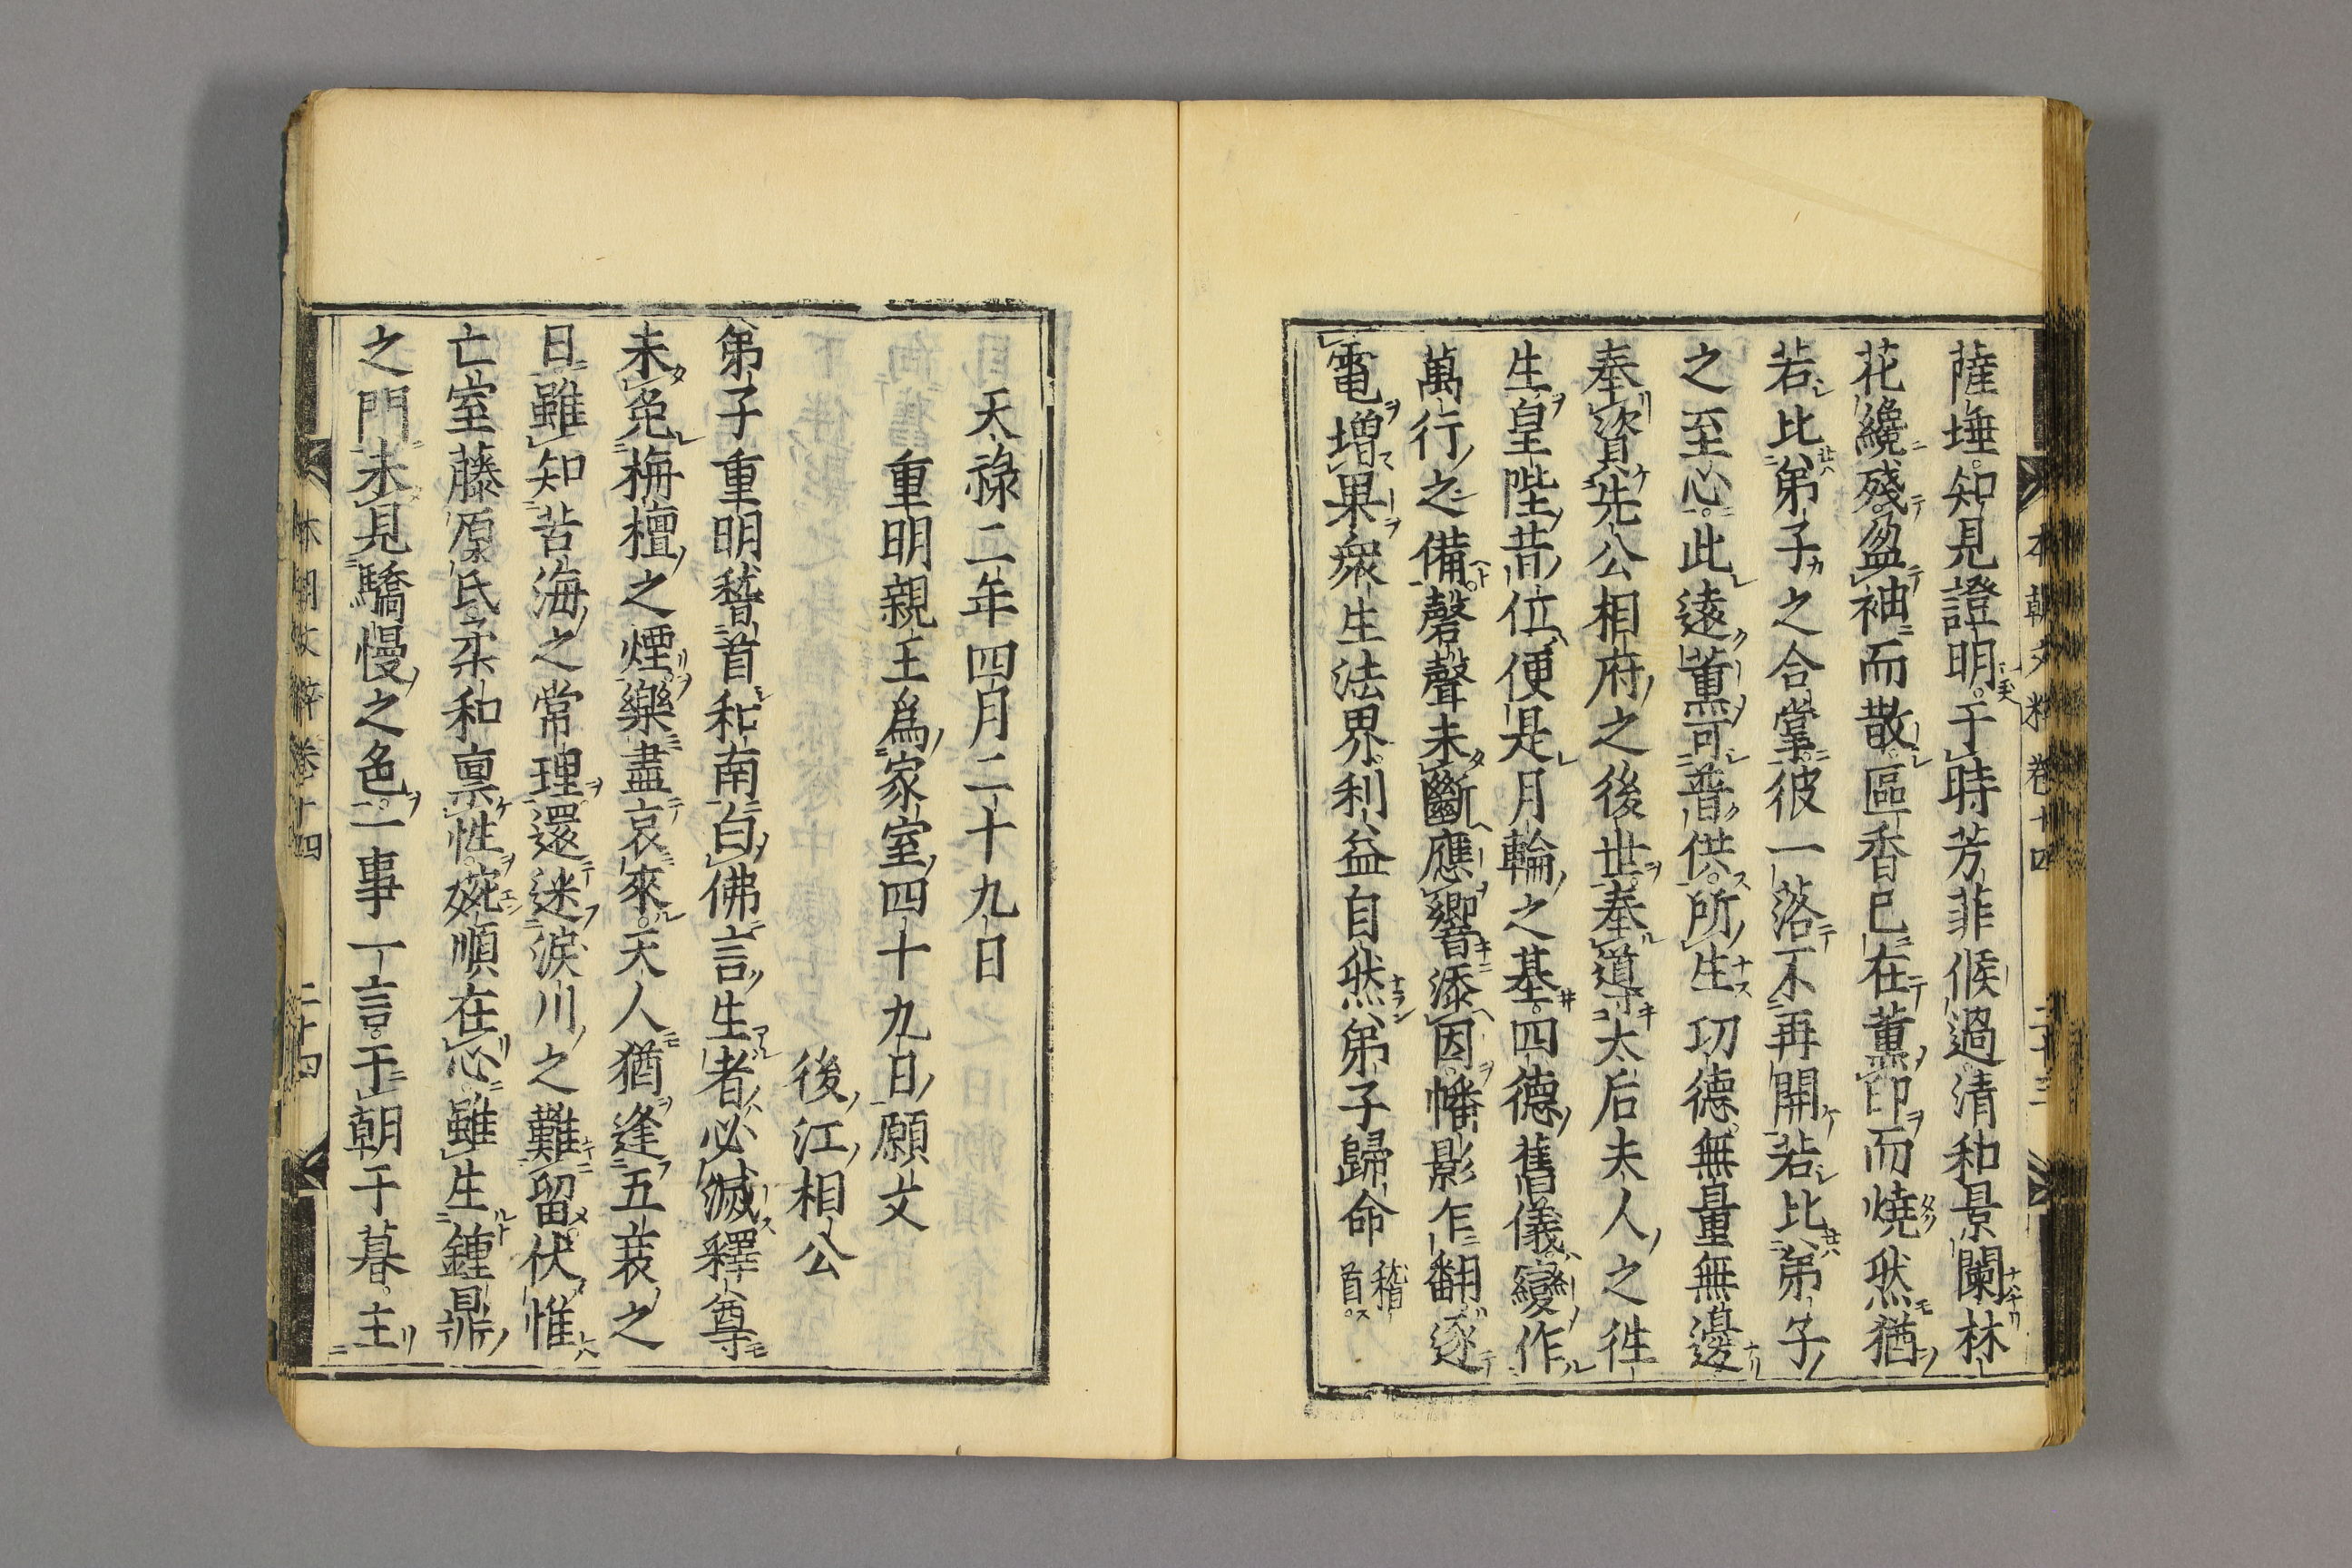 本朝文粹 卷十四 二十三
薩埵。知見證明。于時芳菲候過。清和景闌。林
花纔殘。盈袖而散。區香已在。薰印而燒。然猶
若比弟子之合掌。彼一落不再開。若比弟子
之至心。此遠薰可普供。所生功德。無量無邊。
奉資先公相府之後世。奉導太后夫人之徃
生。皇陛昔位。便是月輪之基。四德舊儀。變作
萬行之備。磬聲未斷。應響添因。幡影乍翻。逐
電增果。衆生法界。利益自然。弟子歸命稽首。
天祿二年四月二十九日
重明親王爲家室四十九日願文
後江相公
弟子重明稽首和南白佛言。生者必滅。釋尊
未免栴檀之煙。樂盡哀來。天人猶逢五衰之
日。雖知苦海之常理。還迷淚川之難留。伏惟
亡室藤原氏。柔和稟性。婉順在心。雖生鍾鼎
之門。未見驕慢之色。一事一言。于朝于暮。主
本朝文粹 卷十四 二十四